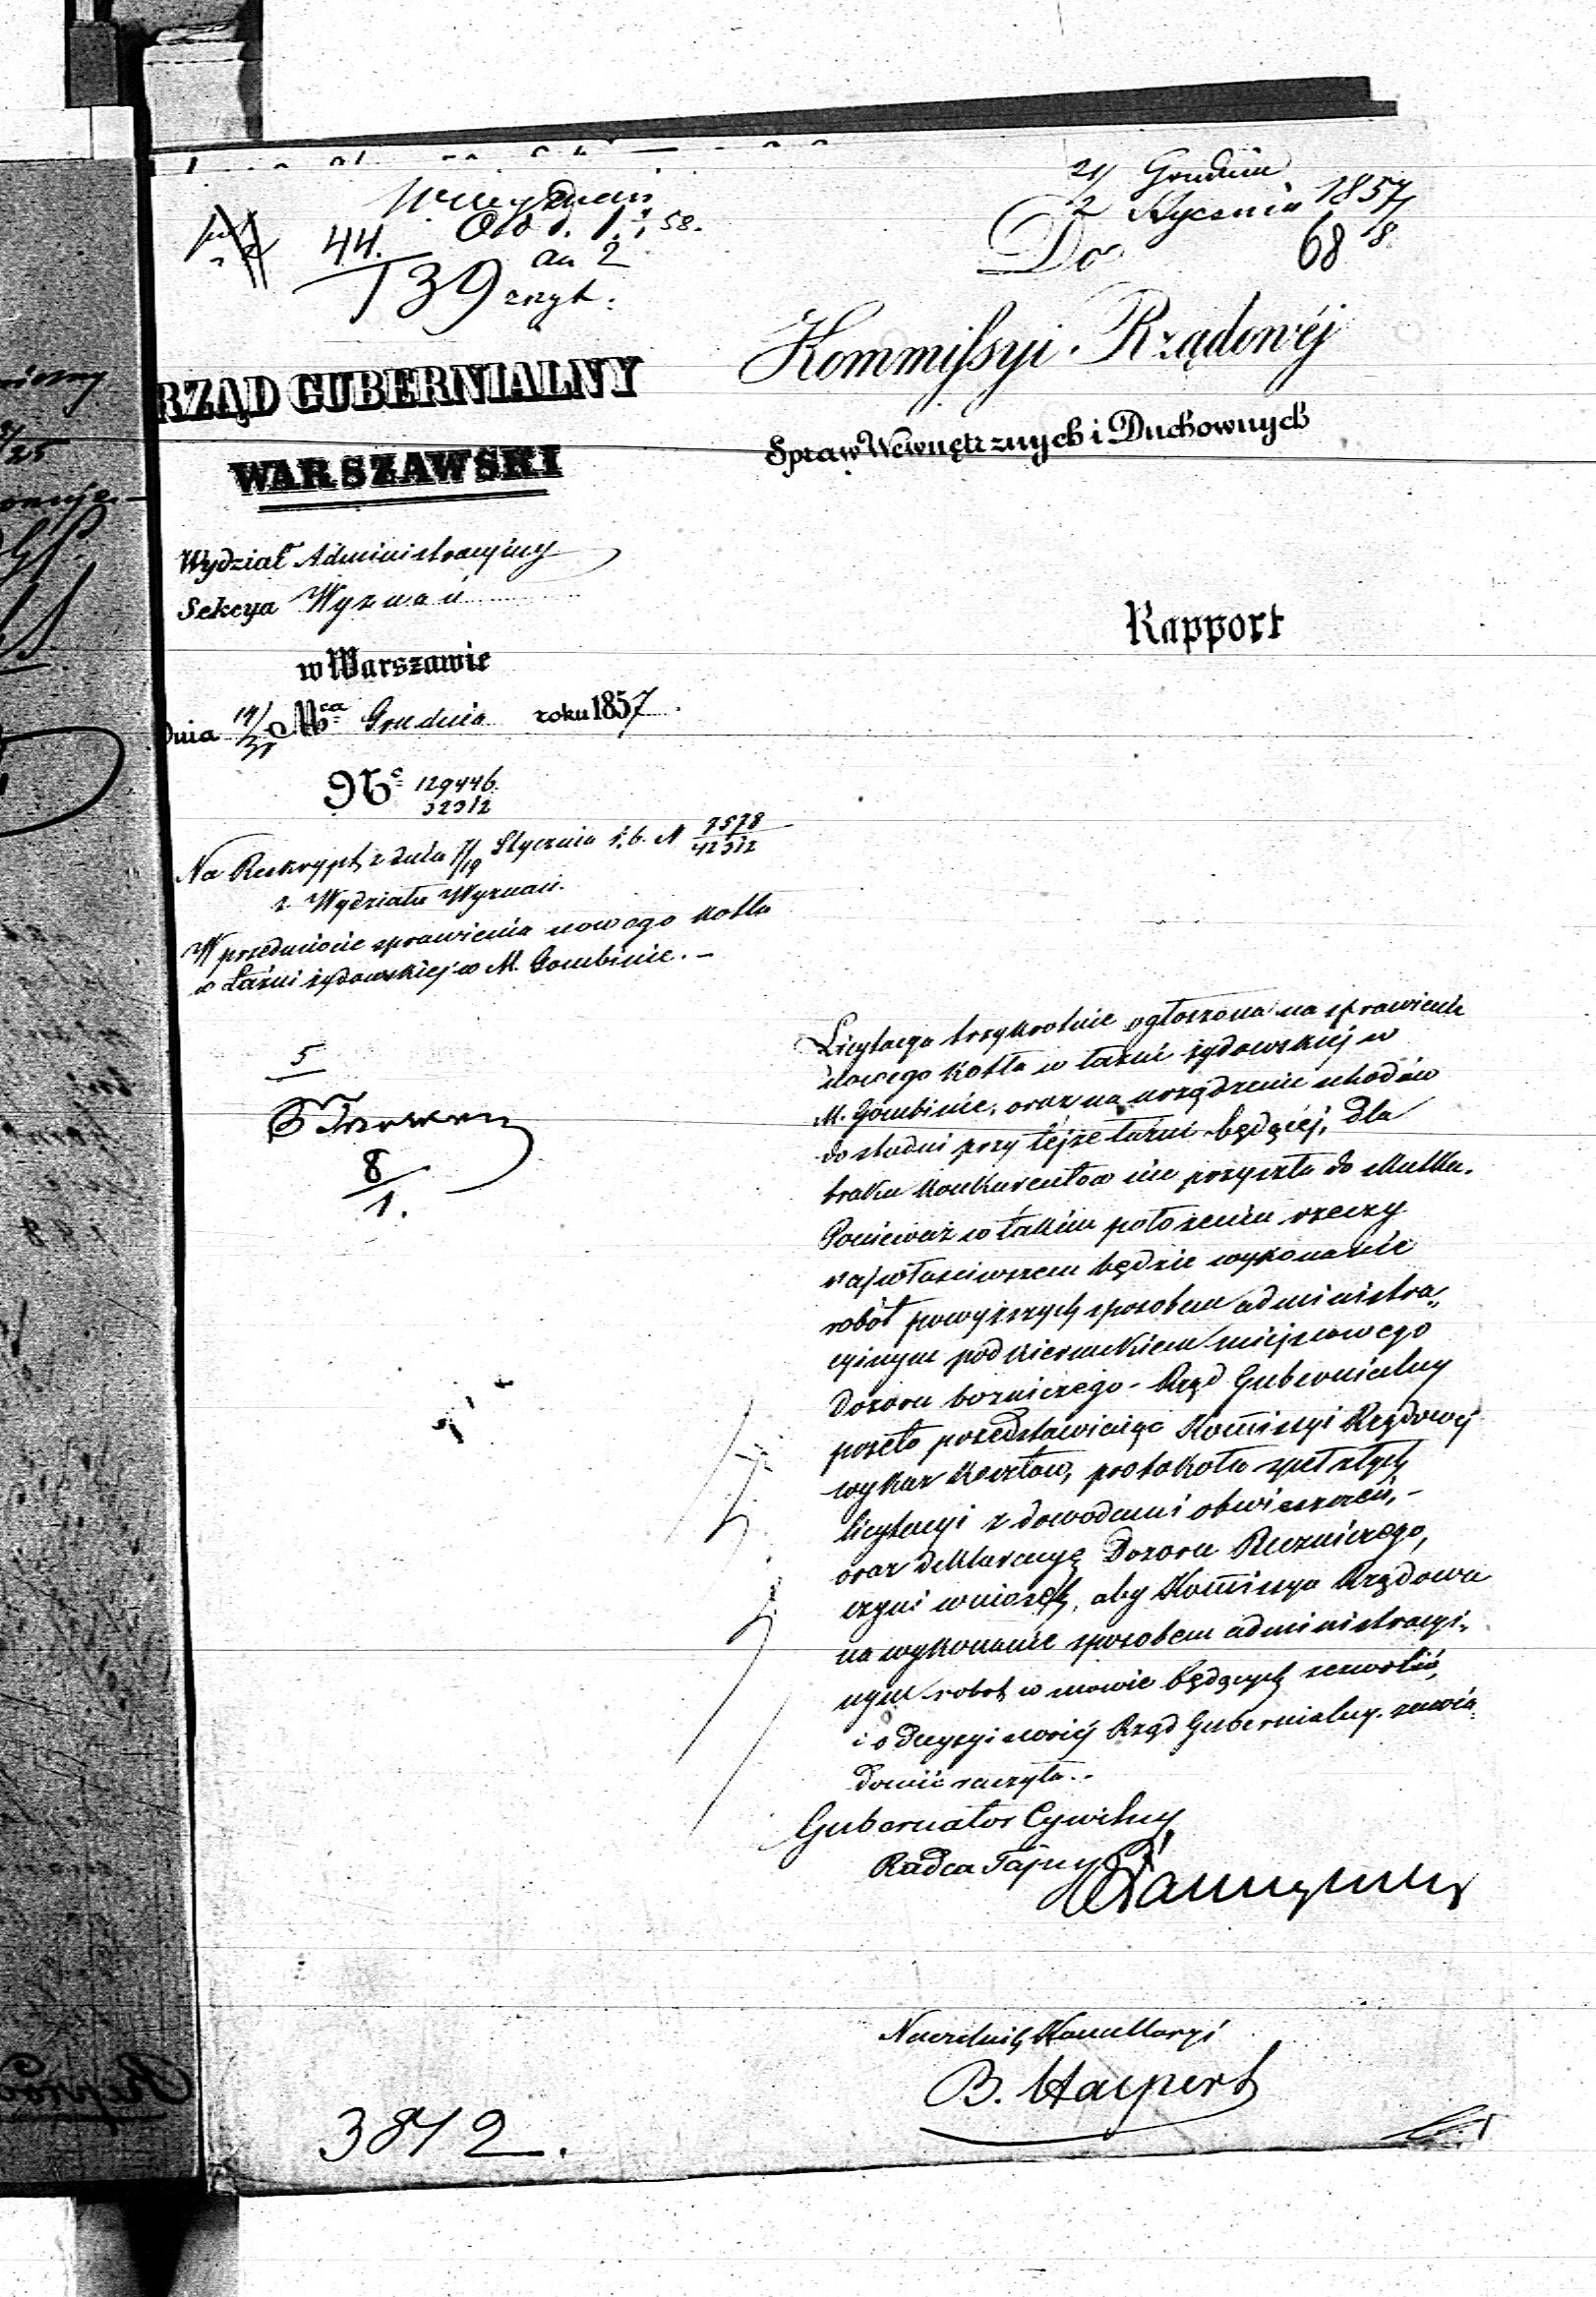 21/2 Grudnia Stycznia 1857/8
44. Odd. 1. 1 58.
139 an 2 zszyt.
Do 68
Kommissyi Rządowéj
Spraw Wewnętrznych i Duchownych
RZĄD GUBERNIALNY
WARSZAWSKI
Wydział Administracyiny
Sekcya Wyznań
w Warszawie
Dnia 19/31 Mca Grudnia roku 1857.
No 129446.
32312
Rapport
Na Reskrypt z dnia 7/19 Stycznia r. b. N 7578/42312
z Wydziału Wyznań.
W przedmiocie sprawienia nowego kotła
w Łaźni żydowskiej w M. Gombinie. –
5
8/1.
Licytacya trzykrotnie ogłoszona na sprawienie
nowego kotła w łaźni żydowskiej w
M. Gombinie, oraz na urządzenie schodów
do studni przy tejże łaźni będącej, dla
braku konkurentów nie przyszła do skutku.
Ponieważ w takim położeniu rzeczy
najwłaściwszem będzie wykonanie
robót powyższych sposobem administra„
cyinym pod kierunkiem miejscowego
Dozoru bożniczego – Rząd Gubernialny
przeto przedstawiając Kommissyi Rządowéj
wykaz kosztów, protokóła spełzłych
licytacyi z dowodami obwieszczeń, –
oraz deklaracyę Dozoru Bożniczego,
czyni wniosek, aby Kommissya Rządowa
na wykonanie sposobem administracyi„
nym robot w mowie będących zezwolić,
i o decyzyi swoiéj Rząd Gubernialny zawia„
domić raczyła. –
Gubernator Cywilny
Radca Tajny
Naczelnik Kancellaryi
B. Halpert
3842.